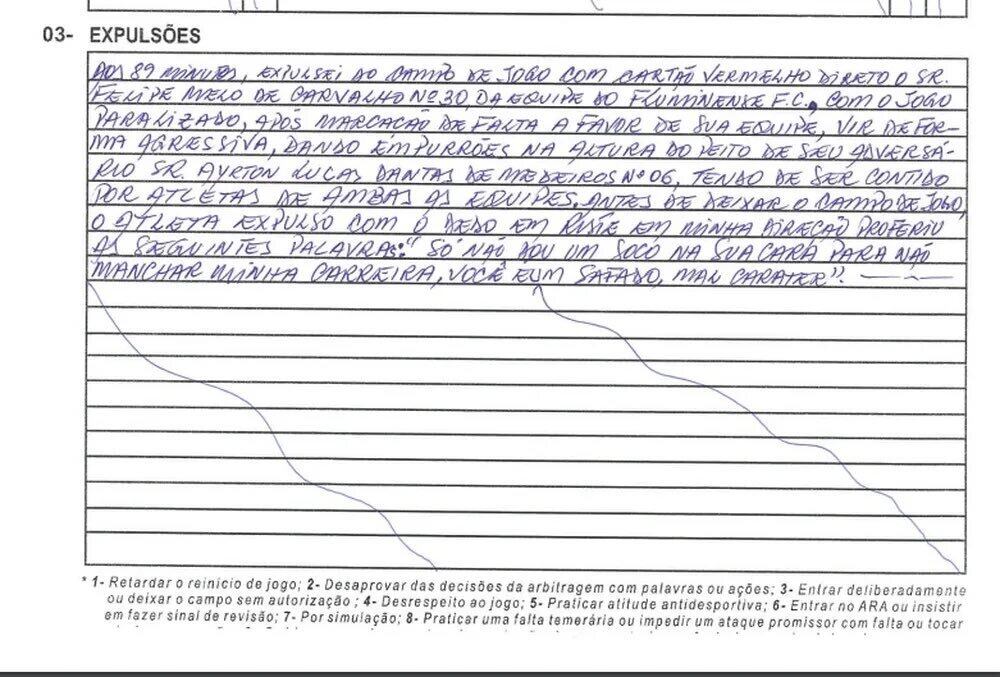 03- EXPULSÕES
AOS 89 MINUTOS, EXPULSEI DO CAMPO DE JOGO COM CARTÃO VERMELHO DIRETO O SR.
FELIPE MELO DE CARVALHO Nº 30, DA EQUIPE DO FLUMINENSE F.C., COM O JOGO
PARALIZADO, APÓS MARCAÇÃO DE FALTA A FAVOR DE SUA EQUIPE, VIR DE FOR-
MA AGRESSIVA, DANDO EMPURRÕES NA ALTURA DO PEITO DE SEU ADVERSÁ-
RIO SR. AYRTON LUCAS DANTAS DE MEDEIROS Nº 06, TENDO DE SER CONTIDO
POR ATLETAS DE AMBAS AS EQUIPES. ANTES DE DEIXAR O CAMPO DE JOGO,
O ATLETA EXPULSO COM O DEDO EM RISTE EM MINHA DIREÇÃO PROFERIU
AS SEGUINTES PALAVRAS: "SÓ NÃO DOU UM SOCO NA SUA CARA PARA NÃO
MANCHAR MINHA CARREIRA, VOCÊ É UM SAFADO, MAU CARATER".
* 1- Retardar o reinicio de jogo; 2- Desaprovar das decisões da arbitragem com palavras ou ações; 3- Entrar deliberadamente
ou deixar o campo sem autorização ; 4- Desrespeito ao jogo; 5- Praticar atitude antidesportiva; 6- Entrar no ARA ou insistir
em fazer sinal de revisão; 7- Por simulação; 8- Praticar uma falta temerária ou impedir um ataque promissor com falta ou tocar